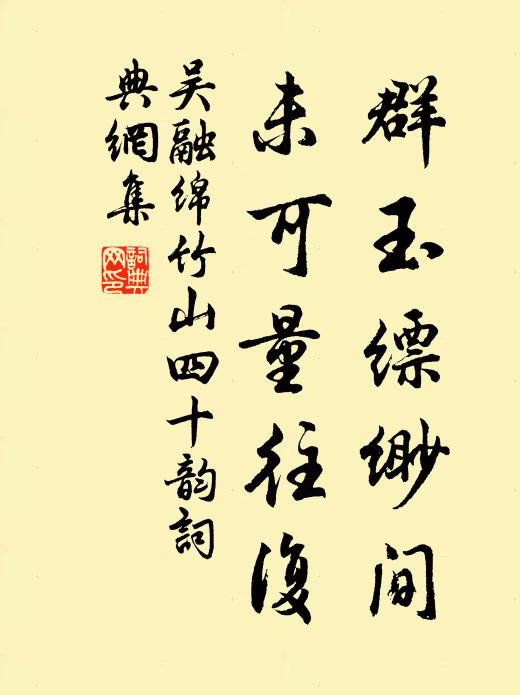 群玉缥缈间
未可量往復
吴融绵竹山四十韵詞
典網集
詞典
网印